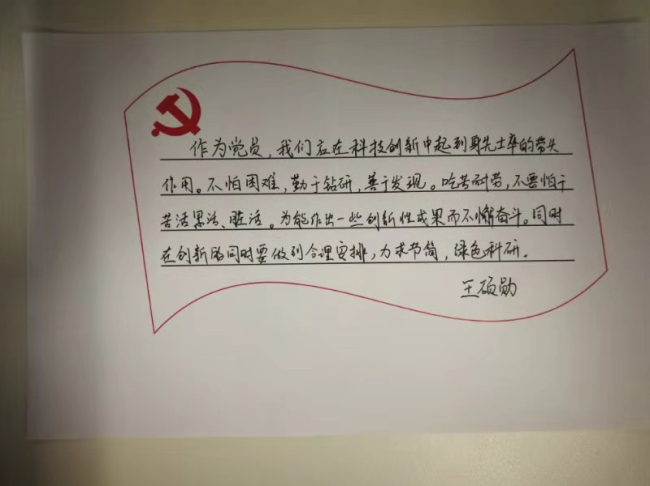 作为党员，我们应在科技创新中起到身先士卒的带头
作用。不怕困难，勤于钻研，善于发现。吃苦耐劳，不要怕干
苦活累活、脏活。为能作出一些创新性成果而不懈奋斗。同时
在创新的同时要做到合理安排，力求节简，绿色科研。
王硕勋